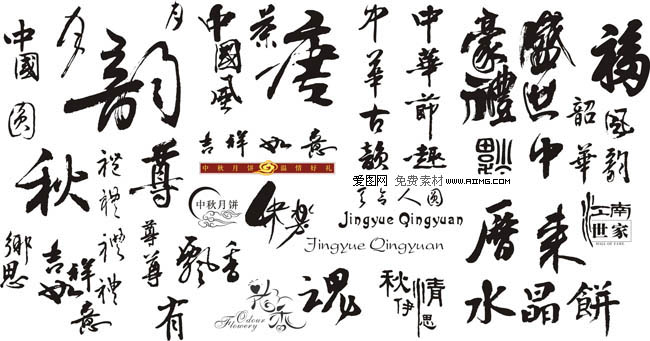 中國
圆
月
月
韵
秋
禮
禮
禮
禮
尊
尊
尊
鄉思
吉祥
如意
飘香
有
中國風
茶
唐
吉祥如意
中秋月饼 温情好礼
中秋月饼
快樂
花香
Odour
Flowery
魂
中華古韻
中華節趣
爱图网 免费素材 www.aiimg.com
人圆
Jingyue Qingyuan
Jingyue Qingyuan
秋伊
情思
豪禮
盛世中
福
韶華
風韵
江南
世家
HALL OF FAME
曆来
水晶餅